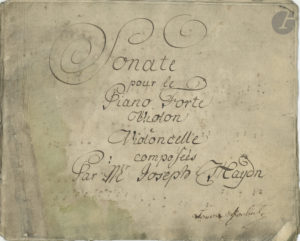 Sonate
pour le
Piano Forte
Violon
Violoncelle
composées
Par Mr. Joseph Haydn